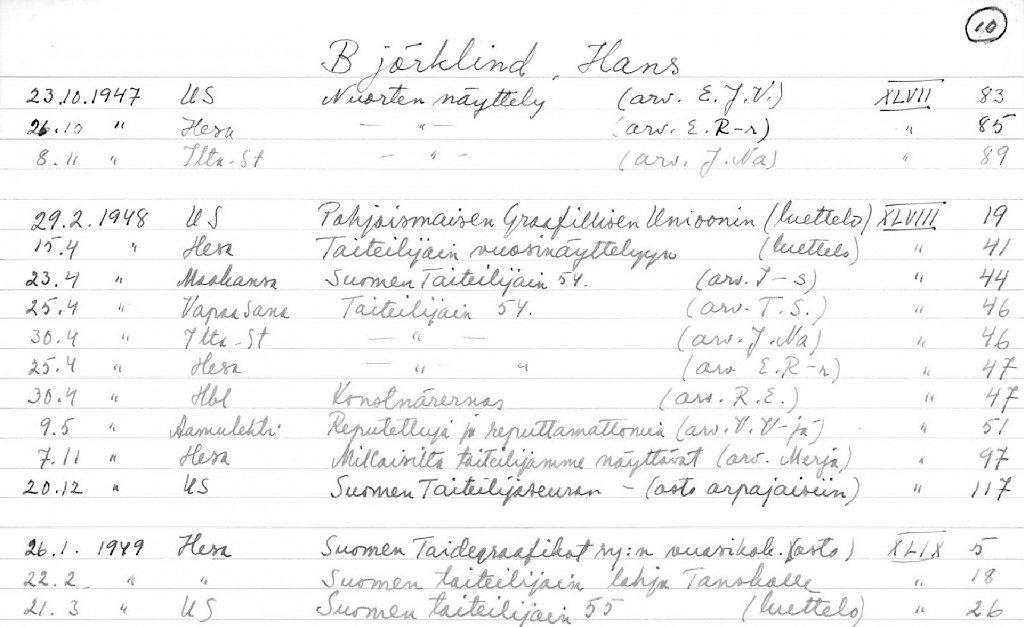 10
Björklind, Hans
23.10.1947 US Nuorten näyttely (arv. E.J.V.) XLVII 83
26.10 " Hesa — " — (arv. E.R-r) " 85
8.11 " Ilta-St — " — (arv. J.Na) " 89
29.2.1948 US Pohjoismaisen Graafillisen Unioonin (luettelo) XLVIII 19
15.4 " Hesa Taiteilijain vuosinäyttelyyn (luettelo) " 41
23.4 " Maakansa Suomen Taiteilijain 54. (arv. I-s) " 44
25.4 " Vapaa Sana Taiteilijain 54. (arv. T.S.) " 46
30.4 " Ilta-St — " — (arv. J.Na) " 46
25.4 " Hesa — " — " (arv. E.R-r) " 47
30.4 " Hbl Konstnärernas (arv. R.E.) " 47
9.5 " Aamulehti Reputettuja ja reputtamattomia (arv. V.V-jä) " 51
7.11 " Hesa Millaisilta taiteilijamme näyttävät (arv. Merja) " 97
20.12 " US Suomen Taiteilijaseuran - (osto arpajaisiin) " 117
26.1. 1949 Hesa Suomen Taidegraafikot ry:n vuosikok. (osto) XLIX 5
22.2 " " Suomen taiteilijain lahja Tanskalle " 18
21.3 " US Suomen taiteilijain 55 (luettelo) " 26